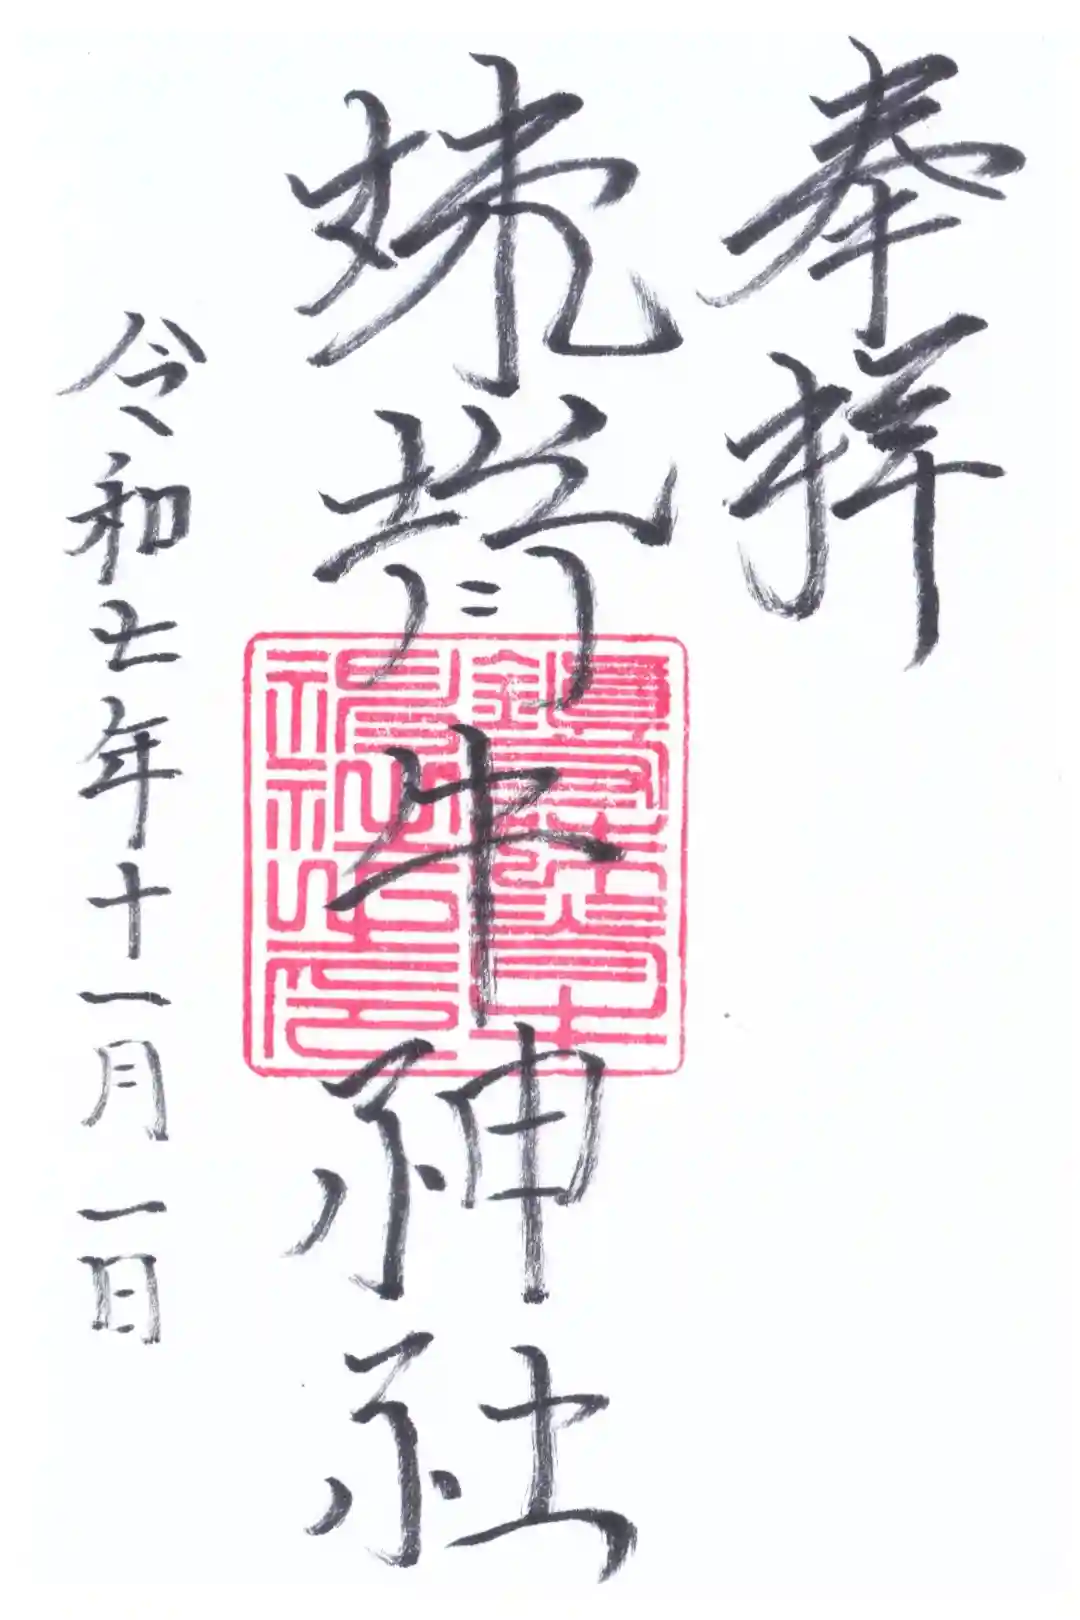 奉拝
妹背牛神社
令和七年十一月一日